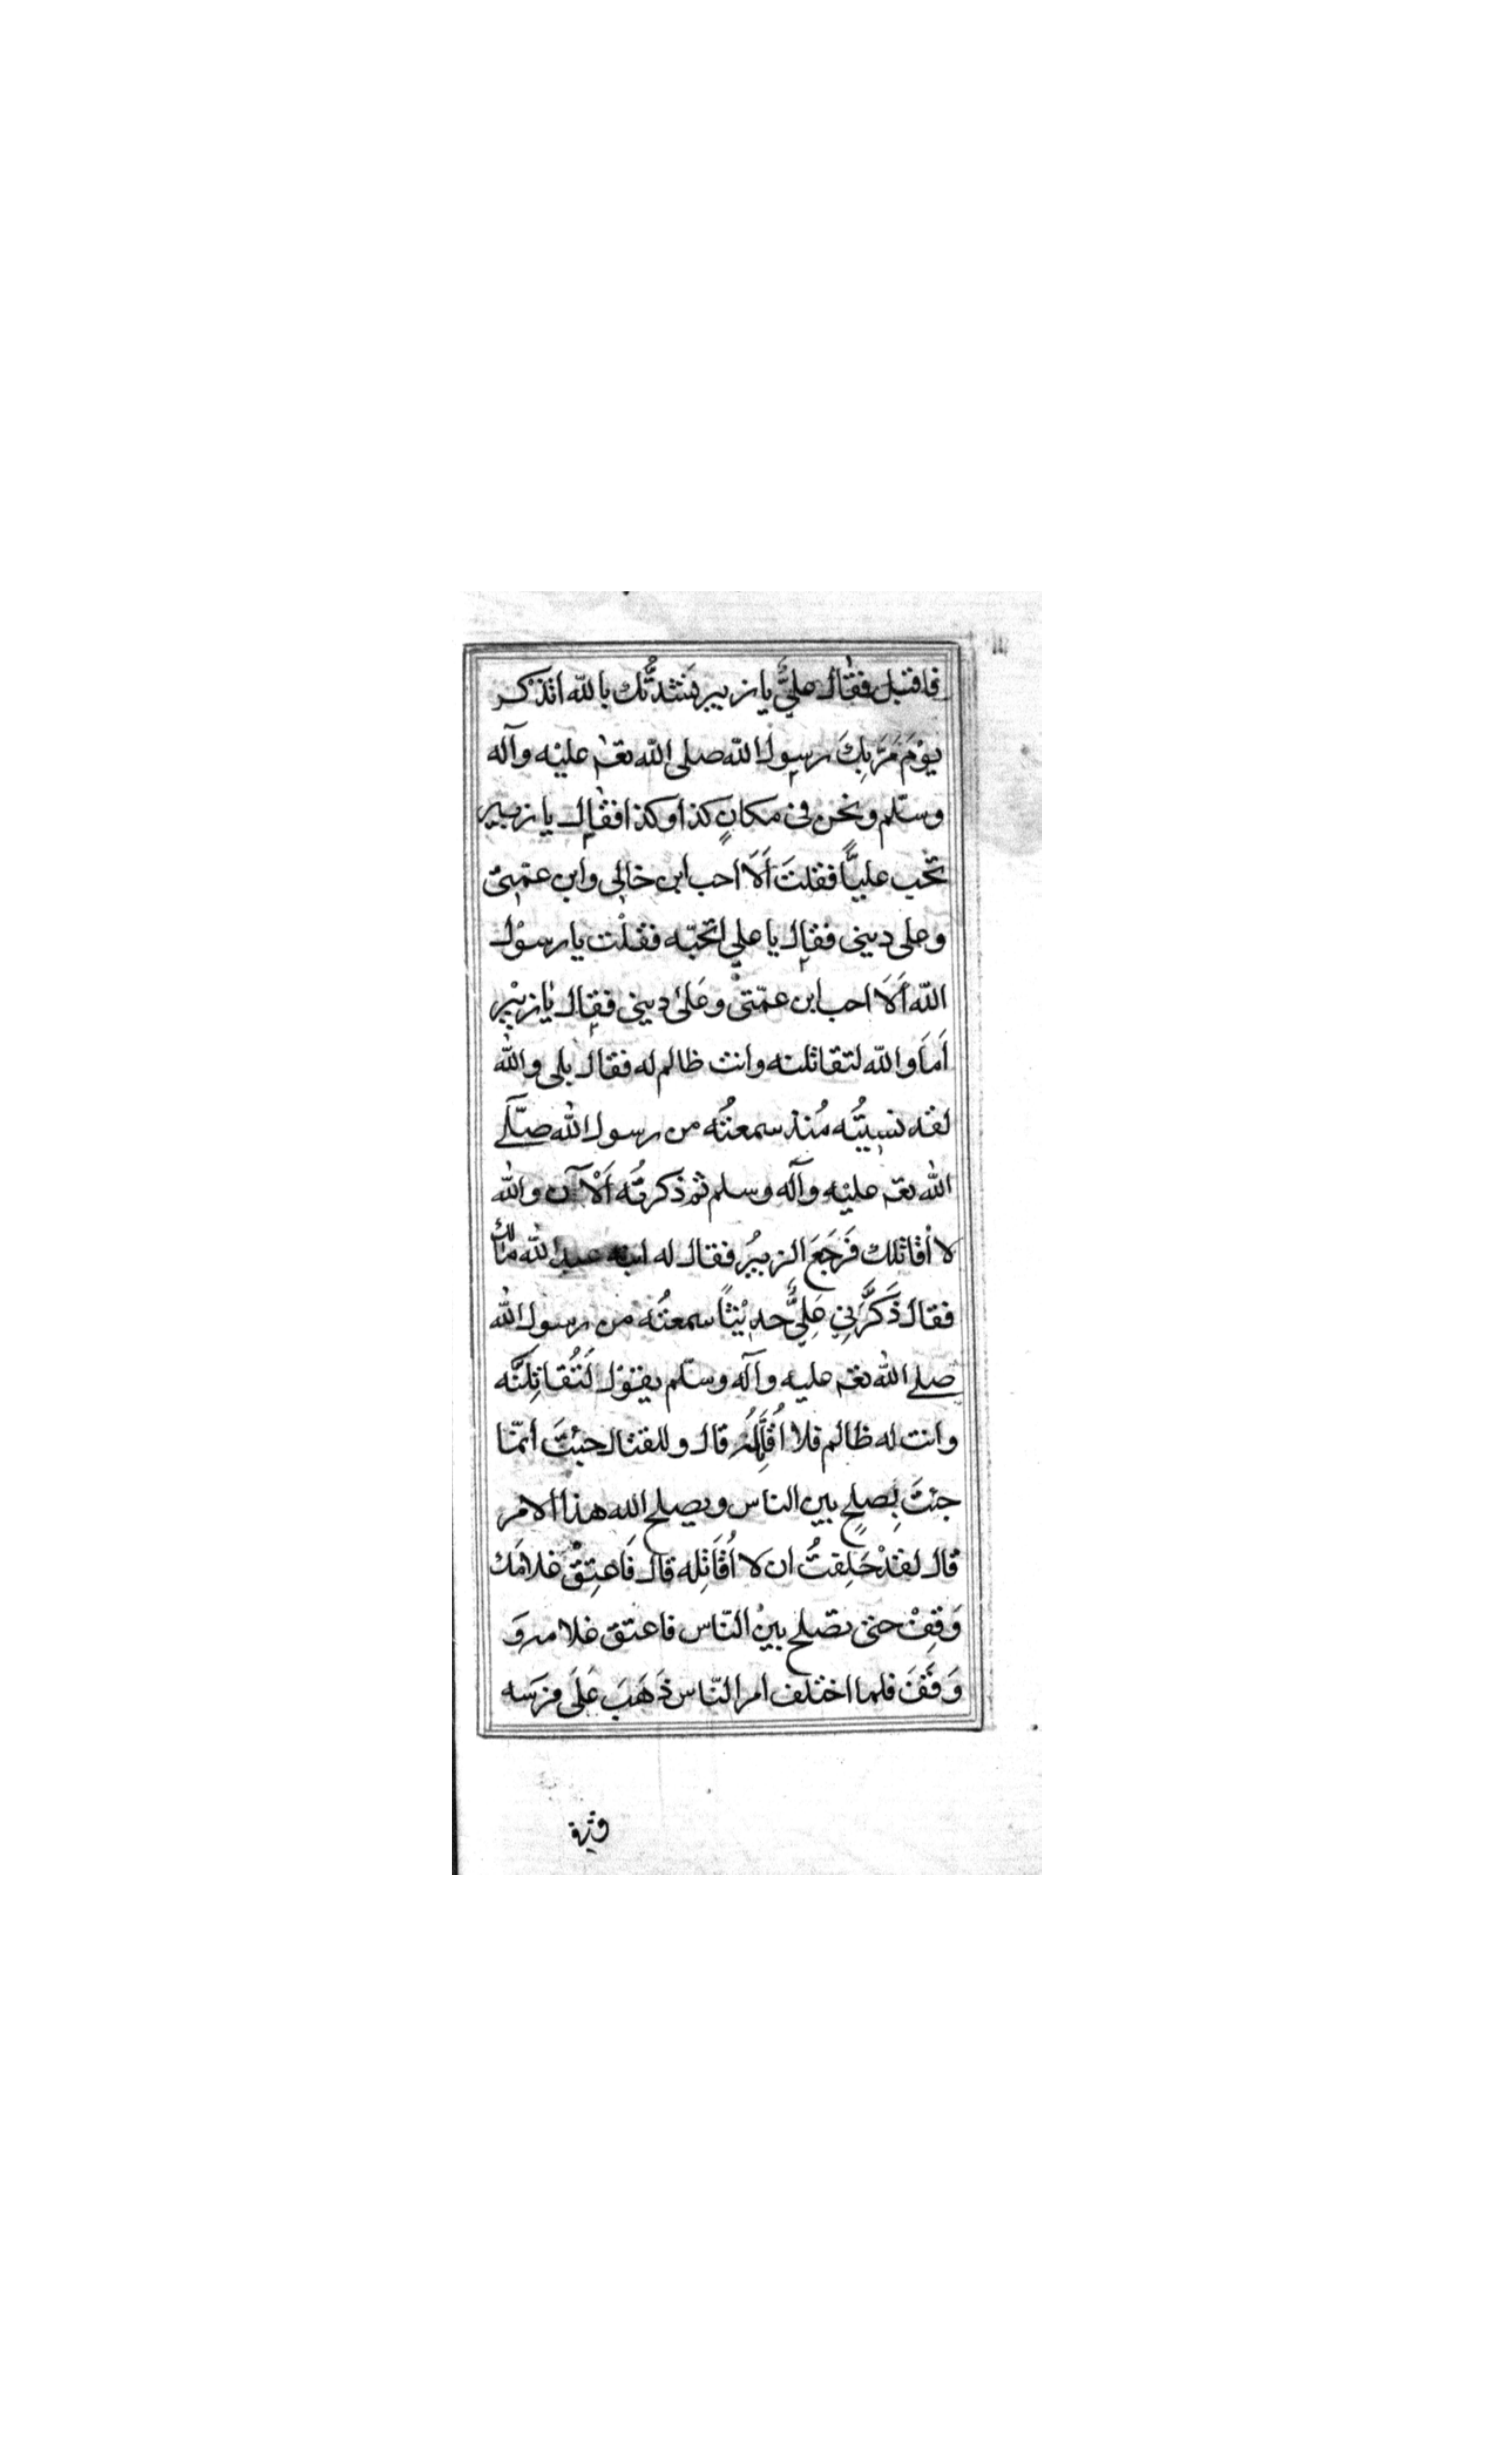 فاقبل فقال عليٌّ يا زبير نشدتُّك بالله اتذكر
يوْمَ مَرَّ بِكَ رسول الله صلى الله تعم عليه وآله
وسلّم ونحن فى مكانٍ كذا وكذا فقال يا زبير
تحب عليًّا فقلتَ اَلَا احب ابن خالى وابن عمّتى
وعلى دينى فقال يا على اتحبّه فقلْت يا رسوْل
الله اَلَا احب ابن عمّتىْ وعَلىٰ دينى فقال يا زبيْر
اَمَا والله لتقاتلنه وانت ظالم له فقال بلى والله
لقد نسيتُه مُنذ سمعتُه من رسول الله صلّى
الله تعم عليه وآله وسلم ثم ذكرتُه اَلْآن والله
لا اُقاتلك فَرَجَعَ الزبيرُ فقال له ابنه عبد الله مالك
فقال ذَكَّرَنِى عَلِىٌّ حديْثاً سمعتُه من رسول الله
صلى الله تعم عليه وآله وسلّم يقوْل لَتُقاتِلَنَّه
وانت له ظالم فلا قال وللقتال جئتَ انمّا
جئتَ لِصلحٍ بين الناس ويصلح الله هذا الامر
قال لقدْ حَلِفتُ ان لا اُقَاتِله قال فَاعتِقْ غلامَك
وَقِفْ حتى تصْلح بينَ النّاس فاعتق غلامه وَ
وَقَفَ فلما اختلف امر النّاس ذَهَبَ عَلَى فرَسَه